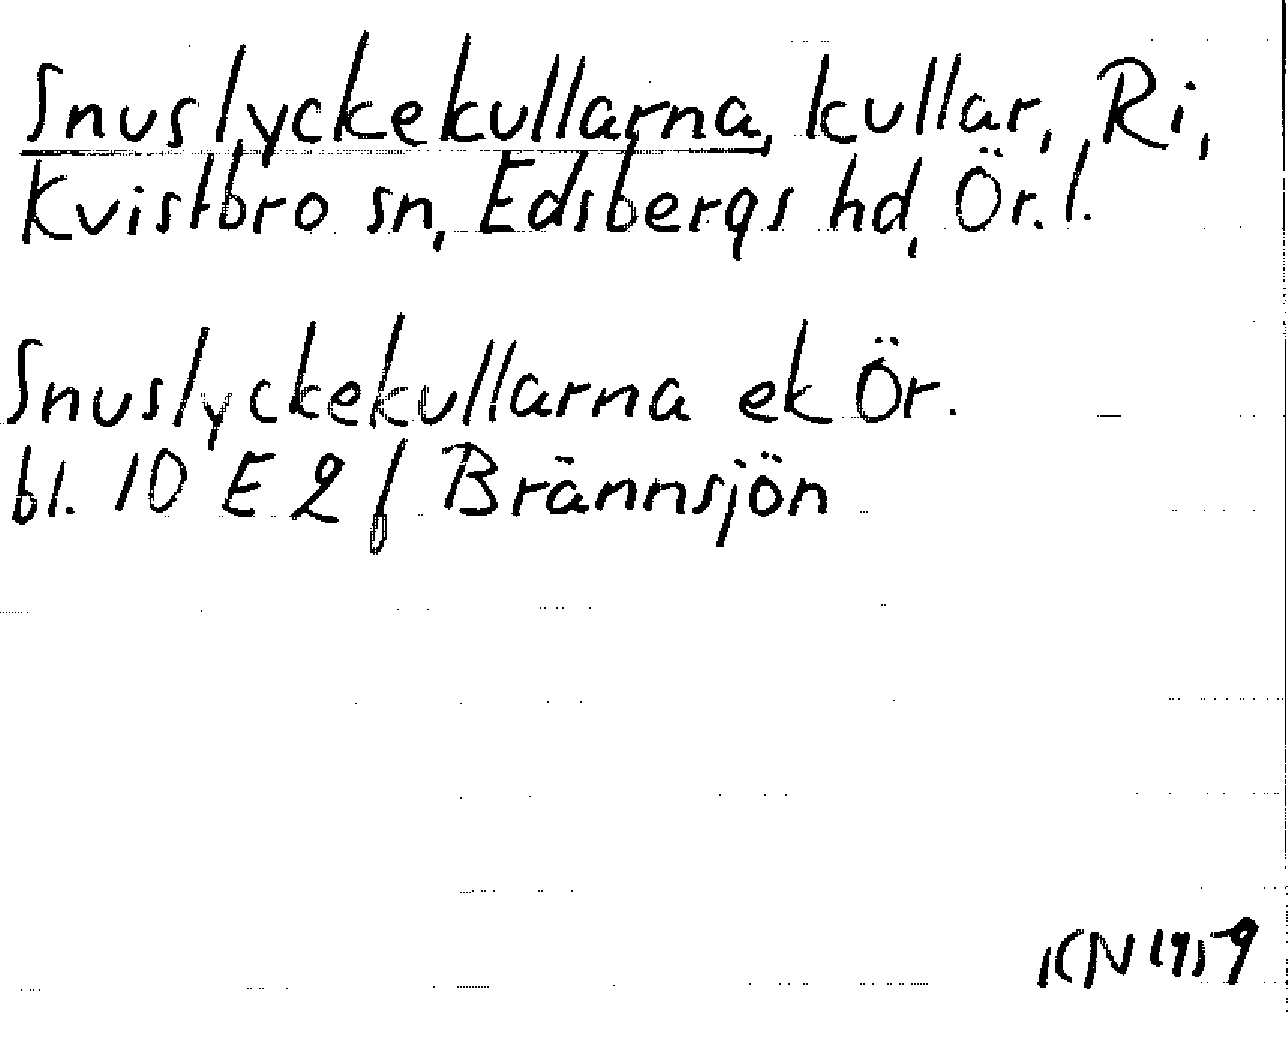 Snuslyckekullarna, kullar, Ri,
Kvistbro sn, Edsbergs hd, Ör. l.
Snuslyckekullarna ek Ör.
bl. 10 E 2 f Brännsjön
KN 1959